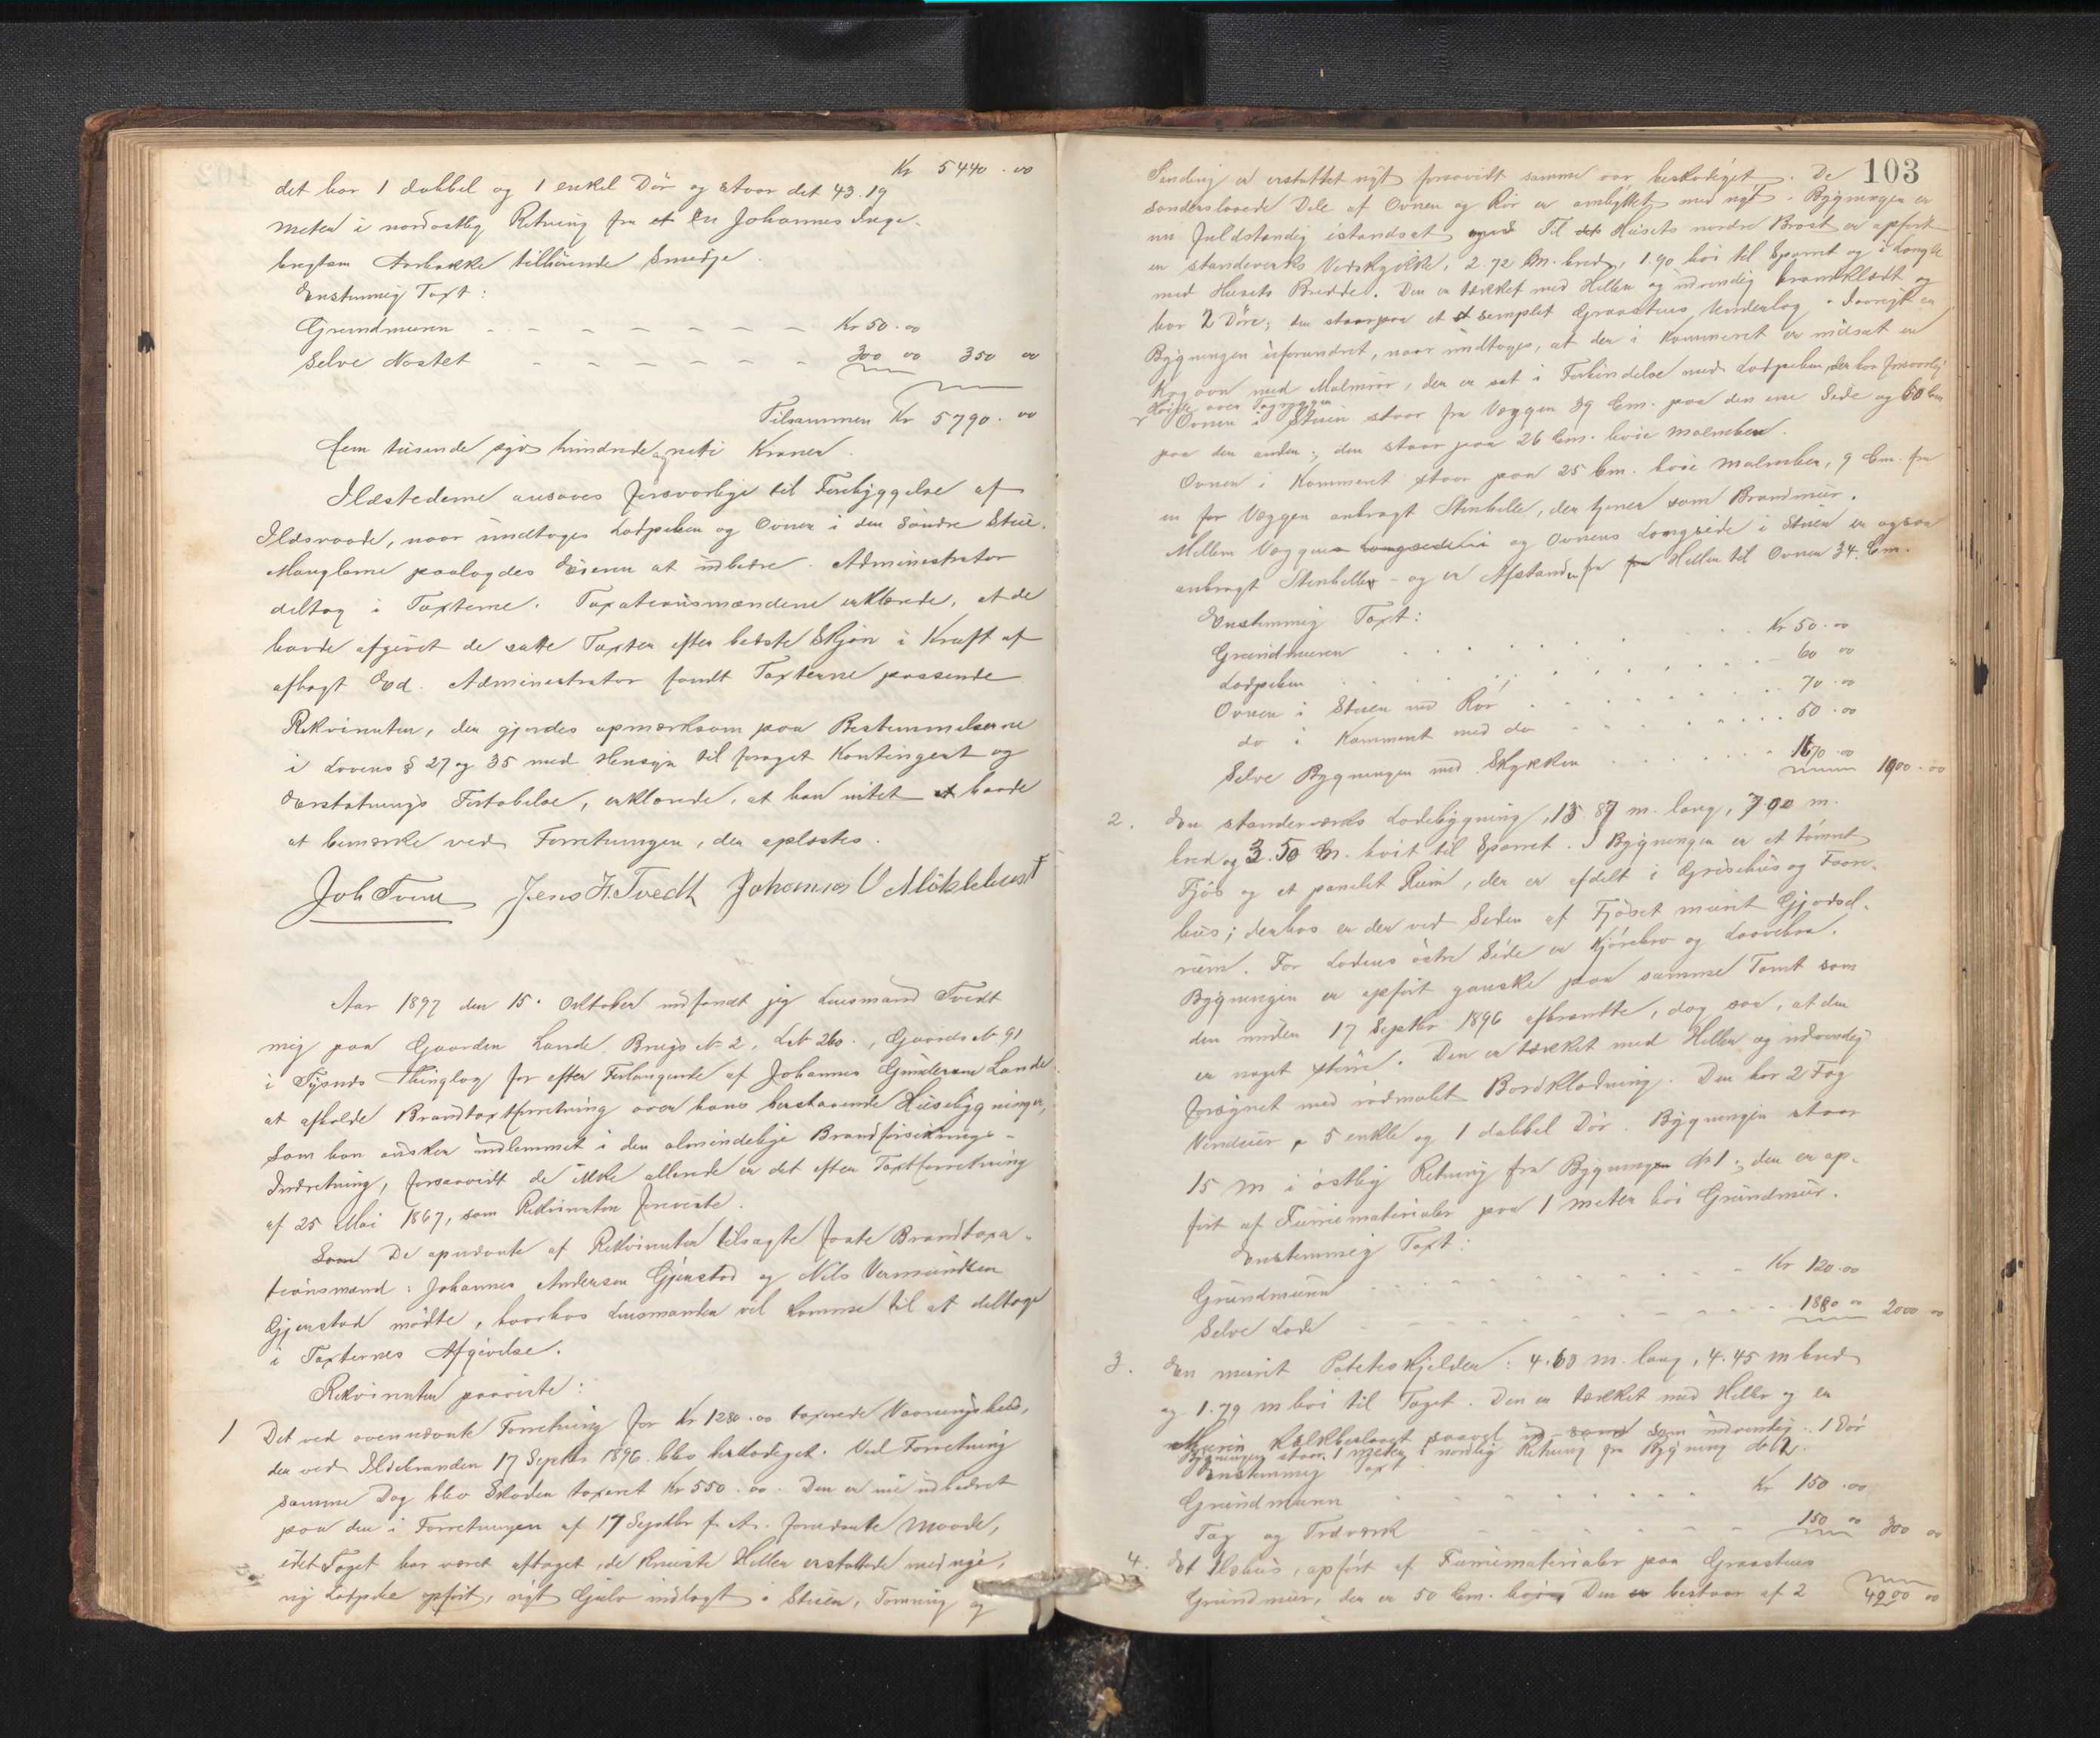 Kr 5440.00
det har 1 dobbel og 1 enkel Dør og staar det 43.19
meter i nordostlig Retning fra et en Johannes Inge-
brigtsen Aarbakke tilhørende Smedje.
Enstemmig Taxt:
Grundmuren - - - - - - - Kr 50.00
Selve Nøstet - - - - - - 300 00 350 00
Tilsammen Kr 5790.00
fem tusende syv hundrede og niti Kroner.
Ildstederne ansaaes forsvarlige til Forebyggelse af
Ildsvaade, naar undtages Lodpiben og Ovnen i den søndre Stue.
Manglerne paalagdes Eieren at udbedre. Administrator
deltog i Taxterne. Taxationsmændene erklærede, at de
havde afgivet de satte Taxter efter bedste Skjøn i Kraft af
aflagt Ed. Administrator fandt Taxterne passende
Rekvirenten, der gjordes opmærksom paa Bestemmelserne
i Lovens § 27 og 35 med Hensyn til forøget Kontingent og
Erstatnings Fortabelse, erklærede, at han intet havde
at bemærke ved Forretningen, der oplæstes.
Joh Tvedt Jens H. Tvedt Johannes O Møklebust
Aar 1897 den 15. Oktober indfandt jeg Lensmand Tvedt
mig paa Gaarden Lande, Brugs No 2, L.No 260., Gaards No 91
i Tysnes Thinglag for efter Forlangende af Johannes Gundersen Lande
at afholde Brandtaxtforretning over hans herstaaende Husebygninger,
som han ønsker indlemmet i den almindelige Brandforsikrings-
Indretning, forsaavidt de ikke allerede er det efter Taxtforretning
af 25 Mai 1867, som Rekvirenten foreviste.
Som De opnævnte af Rekvirenten tilsagte faste Brandtaxa-
tionsmænd: Johannes Andersen Gjerstad og Nils Vermundsen
Gjerstad mødte, hvorhos Lensmanden vil komme til at deltage
i Taxternes Afgivelse.
Rekvirenten paaviste:
1 Det ved ovennævnte Forretning for Kr 1280.00 taxerede Vaaningshus,
der ved Ildebranden 17 Septbr 1896 blev beskadiget. Ved Forretning
samme Dag blev Skaden taxeret Kr 550.00. Den er nu udbedret
paa den i Forretningen af 17 Septbr f. A. forudsatte Maade,
idet Taget har været aftaget, de knuste Heller erstattede med nye,
ny Lodpibe opført, nyt Gulv indlagt i Stuen, Tømring og
103
Panding er erstattet nyt forsaavidt samme var beskadiget. De
sønderslaaede Dele af Ovnen og Rør er ombyttet med nyt. Bygningen er
nu fuldstændig istandsat og Til det Husets nordre Brøst er opført
en standerverks Vedskykke, 2.72 m. bred, 1.90 høi til Sparret og i Længde
med Husets Bredde. Den er tækket med Heller og udvendig bordklædt og
har 2 Døre; den staar paa et simpelt Graastens Underlag. Iøvrigt er
Bygningen uforandret, naar undtages, at der i Kammeret er indsat en
Kogovn med Malmrør, der er sat i Forbindelse med Lodpiben, der har forsvarlig
Høide over Tagryggen
Ovnen i Stuen staar fra Væggen 39 Cm. paa den ene Side og 50 Cm
paa den anden; den staar paa 26 Cm. høie Malmben.
Ovnen i Kammeret staar paa 25 Cm. høie Malmben, 9 Cm. fra
en for Væggen anbragt Stenhelle, der tjener som Brandmur.
Mellem Væggens Langside i og Ovnens Langside i Stuen er ogsaa
anbragt Stenheller - og er Afstanden fra Hellen til Ovnen 34 Cm.
Enstemmig Taxt:
Grundmuren . . . . . Kr 50.00
Lodpiben . . . . . 60 00
Ovnen i Stuen med Rør . . . . . 70.00
do i Kammeret med do . . . . . 50.00
Selve Bygningen med Skykken . . . . . 1670.00 1900.00
2. En standerværks Ladebygning, 13.87 m. lang, 7.00 m.
bred og 3.50 m. høit til Sparret. I Bygningen er et tømret
Fjøs og et panelet Rum, der er afdelt i Grisehus og Faare-
hus; derhos er der ved Siden af Fjøset muret Gjødsel-
rum. For Ladens østre Side er Kjørebro og Laavebro.
Bygningen er opført ganske paa samme Tomt som
den under 17 Septbr 1896 afbrændte, dog saa, at den
er noget større. Den er tækket med Heller og udvendig
forsynet med rødmalet Bordklædning. Den har 2 Fag
Vinduer, 5 enkle og 1 dobbel Dør. Bygningen staar
15 m i østlig Retning fra Bygningen No 1; den er op-
ført af Furumaterialer paa 1 meter høi Grundmur.
Enstemmig Taxt:
Grundmuren - - - - - Kr 120.00
Selve Lade - - - - - 1880 00 2000 00
3. En muret Poteteskjelder: 4.63 m. lang, 4.45 m bred
og 1.79 m høi til Taget. Den er tækket med Heller og er
Muren kalkbeslaaet saavel ud- som indvendig. 1 Dør
Bygningen staar 1 meter i nordlig Retning fra Bygning No 2.
Enstemmig Taxt
Grundmuren - - - - - Kr 150.00
Tag og Træværk - - - - - 150 00 300 00
4. Et Ildhus, opført af Furumaterialer paa Graastens
Grundmur, der er 50 Cm. høi. Den er bestaar af 2
4200 00